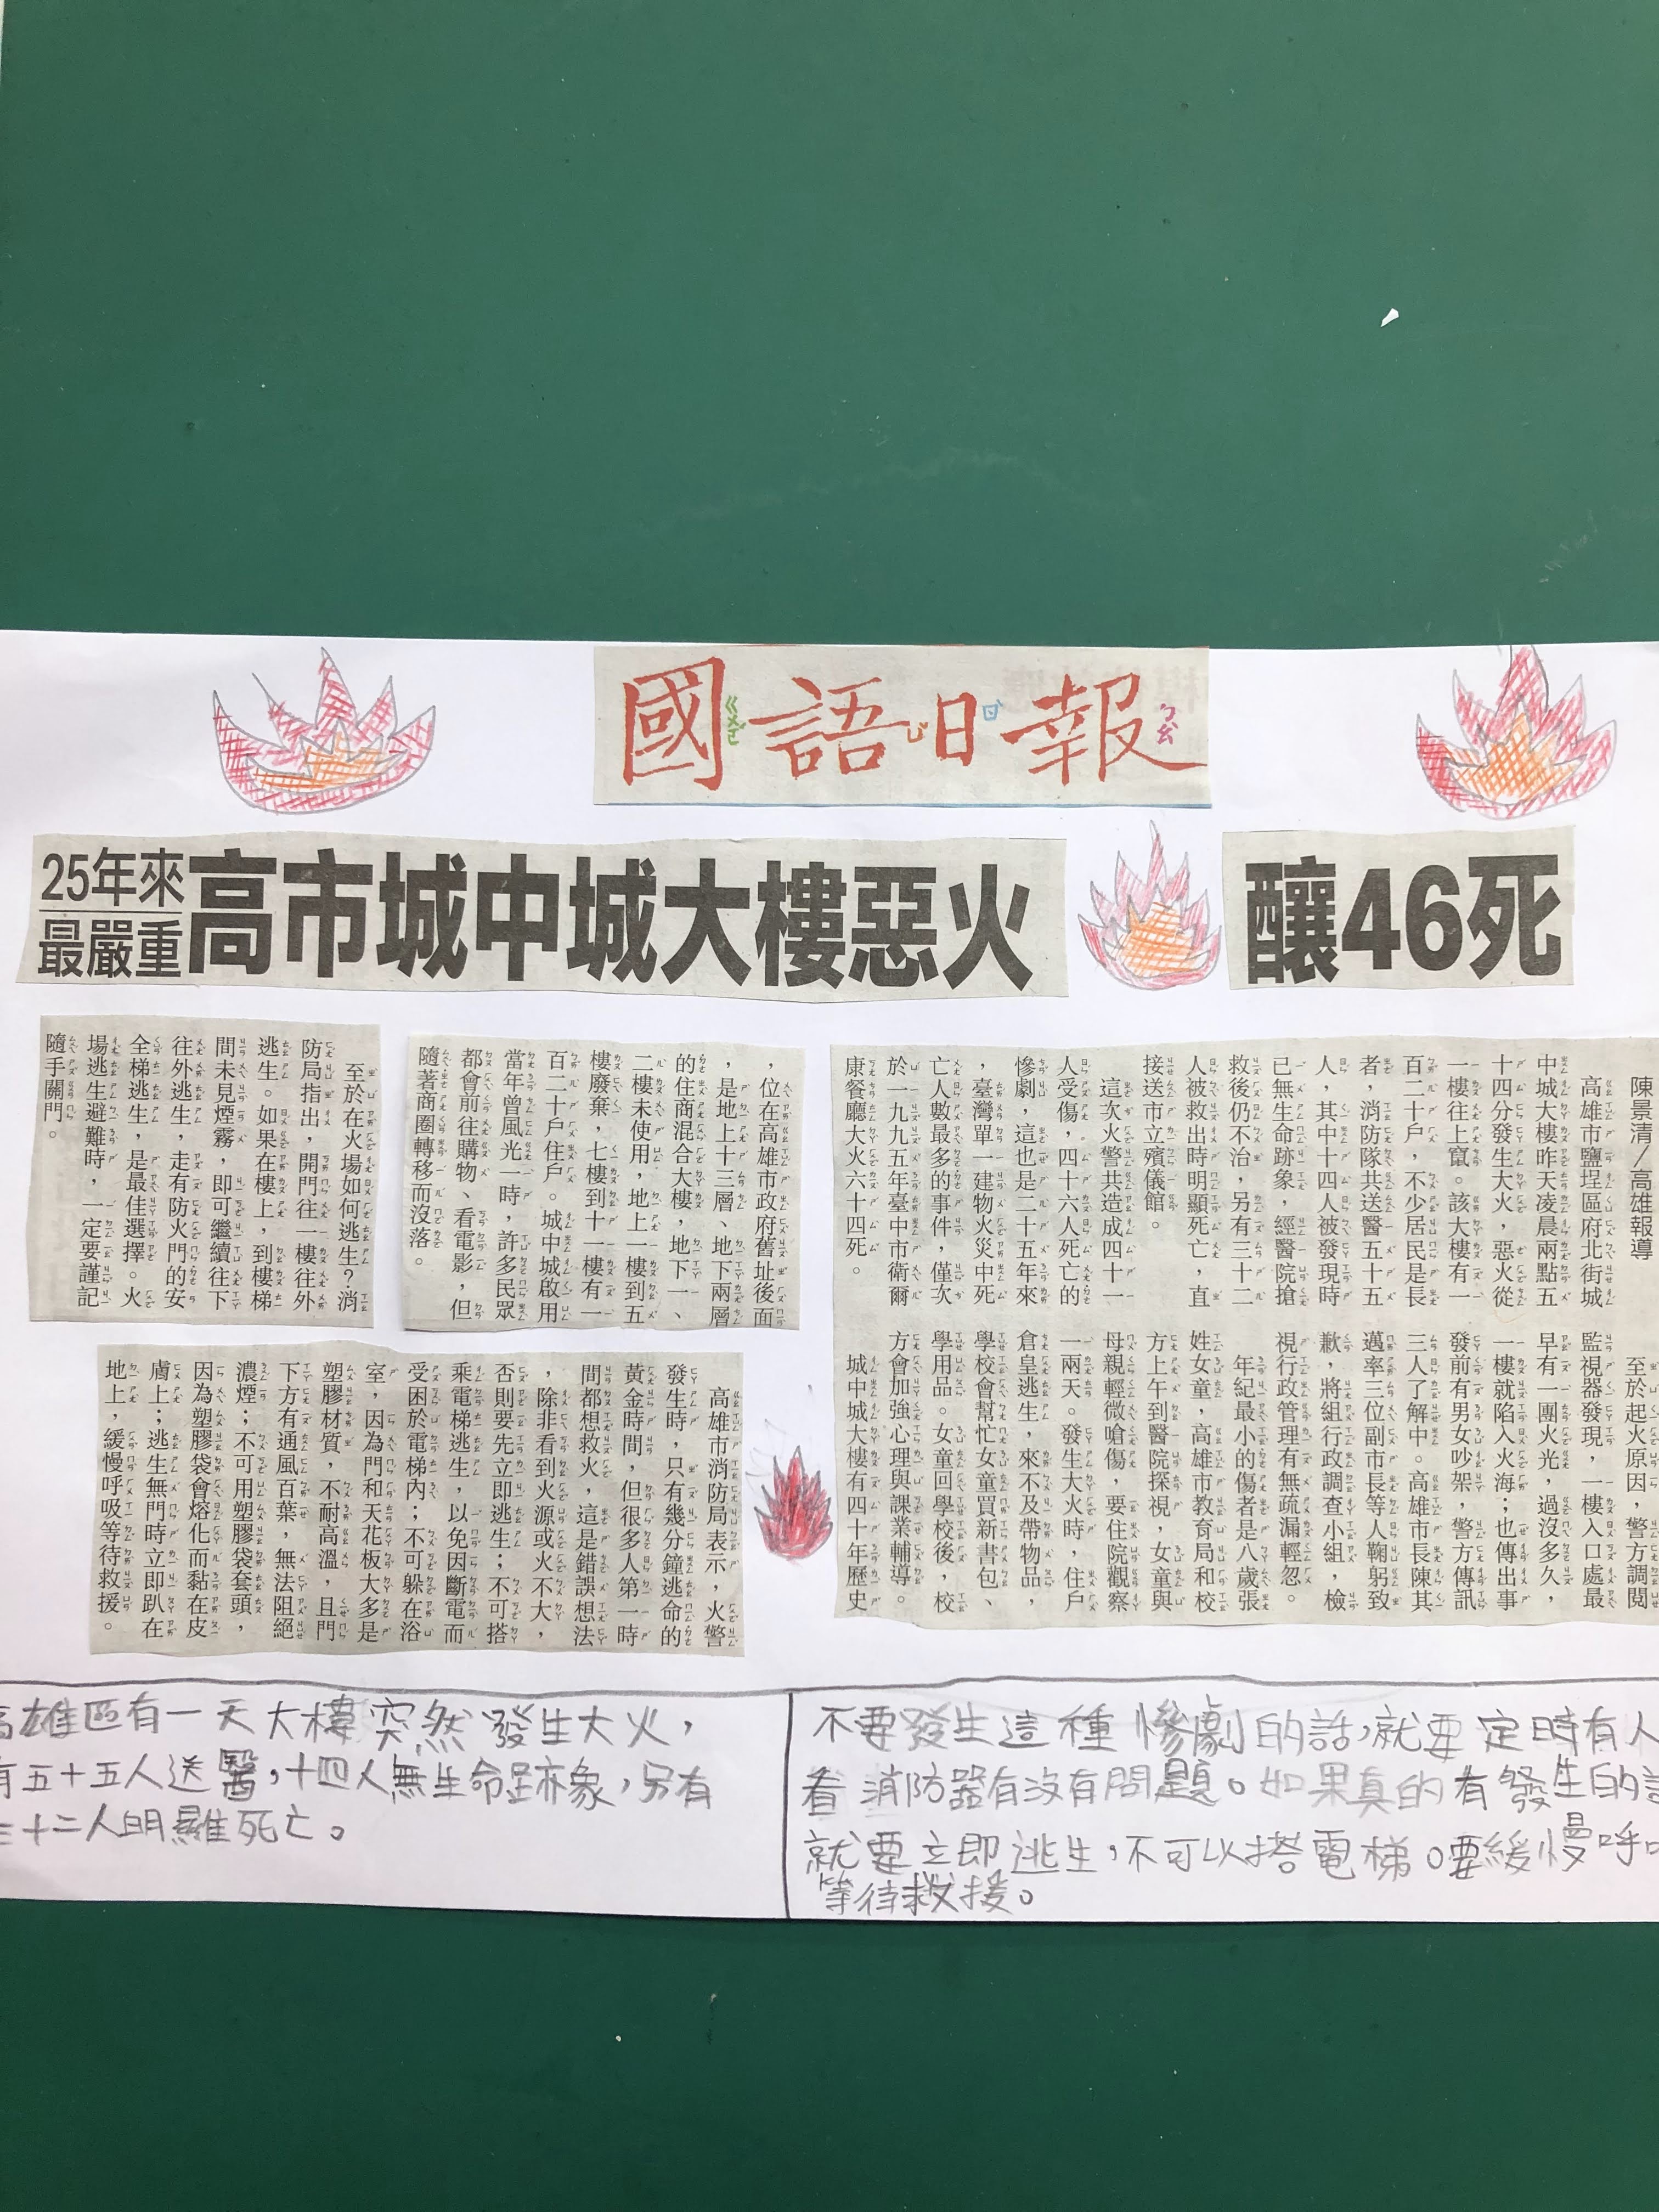 國語日報
ㄍㄨㄛˊ
ㄩˇ
ㄖˋ
ㄅㄠˋ
25年來
最嚴重
高市城中城大樓惡火
釀46死
陳景清/高雄報導
高雄市鹽埕區府北街城
中城大樓昨天凌晨兩點五
十四分發生大火,惡火從
一樓往上竄。該大樓有一
百二十戶,不少居民是長
者,消防隊共送醫五十五
人,其中十四人被發現時
已無生命跡象,經醫院搶
救後仍不治,另有三十二
人被救出時明顯死亡,直
接送市立殯儀館。
這次火警共造成四十一
人受傷,四十六人死亡的
慘劇,這也是二十五年來
,臺灣單一建物火災中死
亡人數最多的事件,僅次
於一九九五年臺中市衛爾
康餐廳大火六十四死。
至於起火原因,警方調閱
監視器發現,一樓入口處最
早有一團火光,過沒多久,
一樓就陷入火海;也傳出事
發前有男女吵架,警方傳訊
三人了解中。高雄市長陳其
邁率三位副市長等人鞠躬致
歉,將組行政調查小組,檢
視行政管理有無疏漏輕忽。
年紀最小的傷者是八歲張
姓女童,高雄市教育局和校
方上午到醫院探視,女童與
母親輕微嗆傷,要住院觀察
一兩天。發生大火時,住戶
倉皇逃生,來不及帶物品,
學校會幫忙女童買新書包、
學用品。女童回學校後,校
方會加強心理與課業輔導。
城中城大樓有四十年歷史
,位在高雄市政府舊址後面
,是地上十三層、地下兩層
的住商混合大樓,地下一、
二樓未使用,地上一樓到五
樓廢棄,七樓到十一樓有一
百二十戶住戶。城中城啟用
當年曾風光一時,許多民眾
都會前往購物、看電影,但
隨著商圈轉移而沒落。
高雄市消防局表示,火警
發生時,只有幾分鐘逃命的
黃金時間,但很多人第一時
間都想救火,這是錯誤想法
,除非看到火源或火不大,
否則要先立即逃生;不可搭
乘電梯逃生,以免因斷電而
受困於電梯內;不可躲在浴
室,因為門和天花板大多是
塑膠材質,不耐高溫,且門
下方有通風百葉,無法阻絕
濃煙;不可用塑膠袋套頭,
因為塑膠袋會熔化而黏在皮
膚上;逃生無門時立即趴在
地上,緩慢呼吸等待救援。
至於在火場如何逃生?消
防局指出,開門往一樓往外
逃生。如果在樓上,到樓梯
間未見煙霧,即可繼續往下
往外逃生,走有防火門的安
全梯逃生,是最佳選擇。火
場逃生避難時,一定要謹記
隨手關門。
高雄區有一天大樓突然發生大火,
有五十五人送醫,十四人無生命跡象,另有
三十二人明顯死亡。
不要發生這種慘劇的話,就要定時有人
看消防器有沒有問題。如果真的有發生的話
就要立即逃生,不可以搭電梯。要緩慢呼
等待救援。